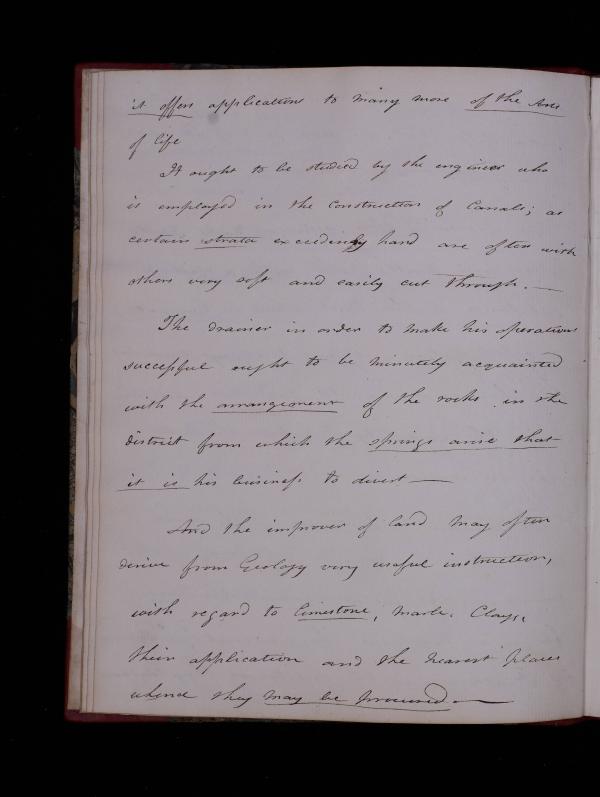 it offers applications to many more of the Arts
of life
It ought to be studied by the engineer who
is employed in the construction of Canals; as
certain strata exceedingly hard are often with
others very soft and easily cut through. —
The drainer in order to make his operations
successful ought to be minutely acquainted
with the arrangement of the rocks in the
district from which the springs arise that
it is his business to divert —
And the improver of land may often
derive from Geology very useful instruction,
with regard to limestone, marle, Clays,
their application and the nearest places
whence they may be procured —